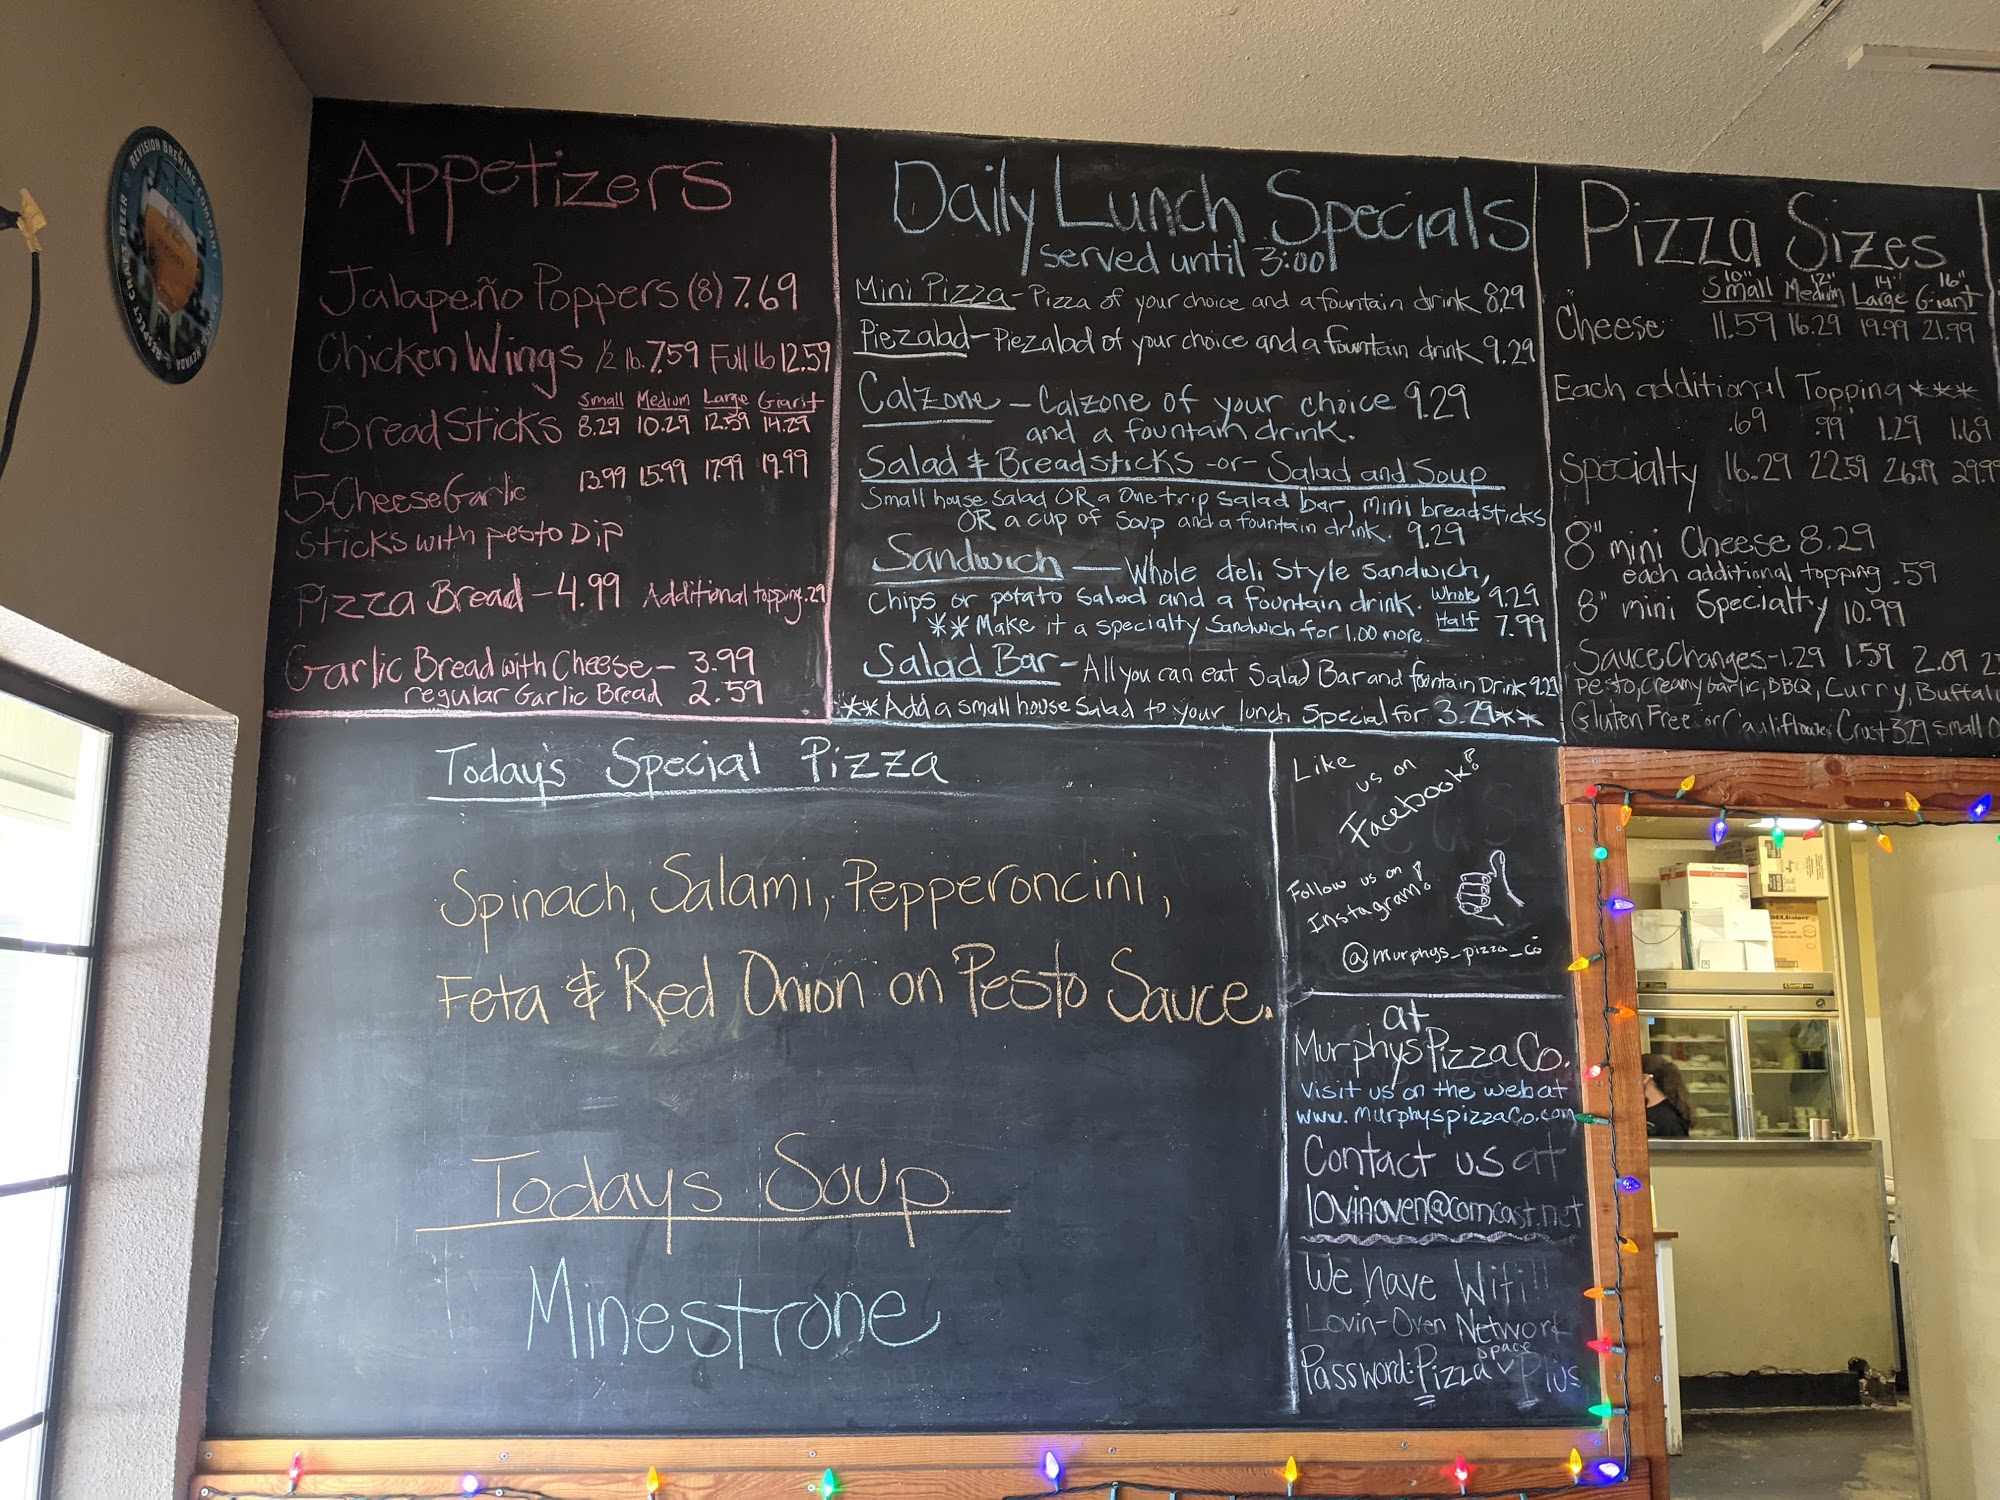 REVISION BREWING COMPANY
RESPECT CRAFT BEER
NEVADA
Appetizers
Jalapeño Poppers (8) 7.69
Chicken Wings 1/2 lb. 7.59 Full lb 12.59
Small Medium Large Giant
BreadSticks 8.29 10.29 12.59 14.29
5-Cheese Garlic 13.99 15.99 17.99 19.99
Sticks with pesto Dip
Pizza Bread - 4.99 Additional topping .29
Garlic Bread with Cheese - 3.99
regular Garlic Bread 2.59
Daily Lunch Specials
served until 3:00
Mini Pizza - Pizza of your choice and a fountain drink 8.29
Piezalad - Piezalad of your choice and a fountain drink 9.29
Calzone - Calzone of your choice 9.29
and a fountain drink.
Salad & Breadsticks -or- Salad and Soup
Small house salad OR a One trip salad bar, mini breadsticks
OR a cup of soup and a fountain drink. 9.29
Sandwich — Whole deli style sandwich,
chips or potato salad and a fountain drink. Whole 9.29
**Make it a specialty sandwich for 1.00 more. Half 7.99
Salad Bar - All you can eat Salad Bar and fountain Drink 9.29
**Add a small house salad to your lunch special for 3.29**
Pizza Sizes
10" 12" 14" 16"
Small Medium Large Giant
Cheese 11.59 16.29 19.99 21.99
Each additional Topping ***
.69 .99 1.29 1.69
Specialty 16.29 22.59 26.99 29.99
8" mini Cheese 8.29
each additional topping .59
8" mini Specialty 10.99
Sauce Changes - 1.29 1.59 2.09
pesto, creamy garlic, BBQ, Curry, Buffalo
Gluten Free or Cauliflower Crust 3.29 small
Today's Special Pizza
Spinach, Salami, Pepperoncini,
Feta & Red Onion on Pesto Sauce.
Todays Soup
Minestrone
Like
us on
Facebook!
Follow us on
Instagram!
@murphys_pizza_co
at
Murphys Pizza Co.
Visit us on the web at
www.murphyspizzaco.com
Contact us at
lovinoven@comcast.net
We have Wifi!!
Lovin-Oven Network
space
Password: Pizza Plus